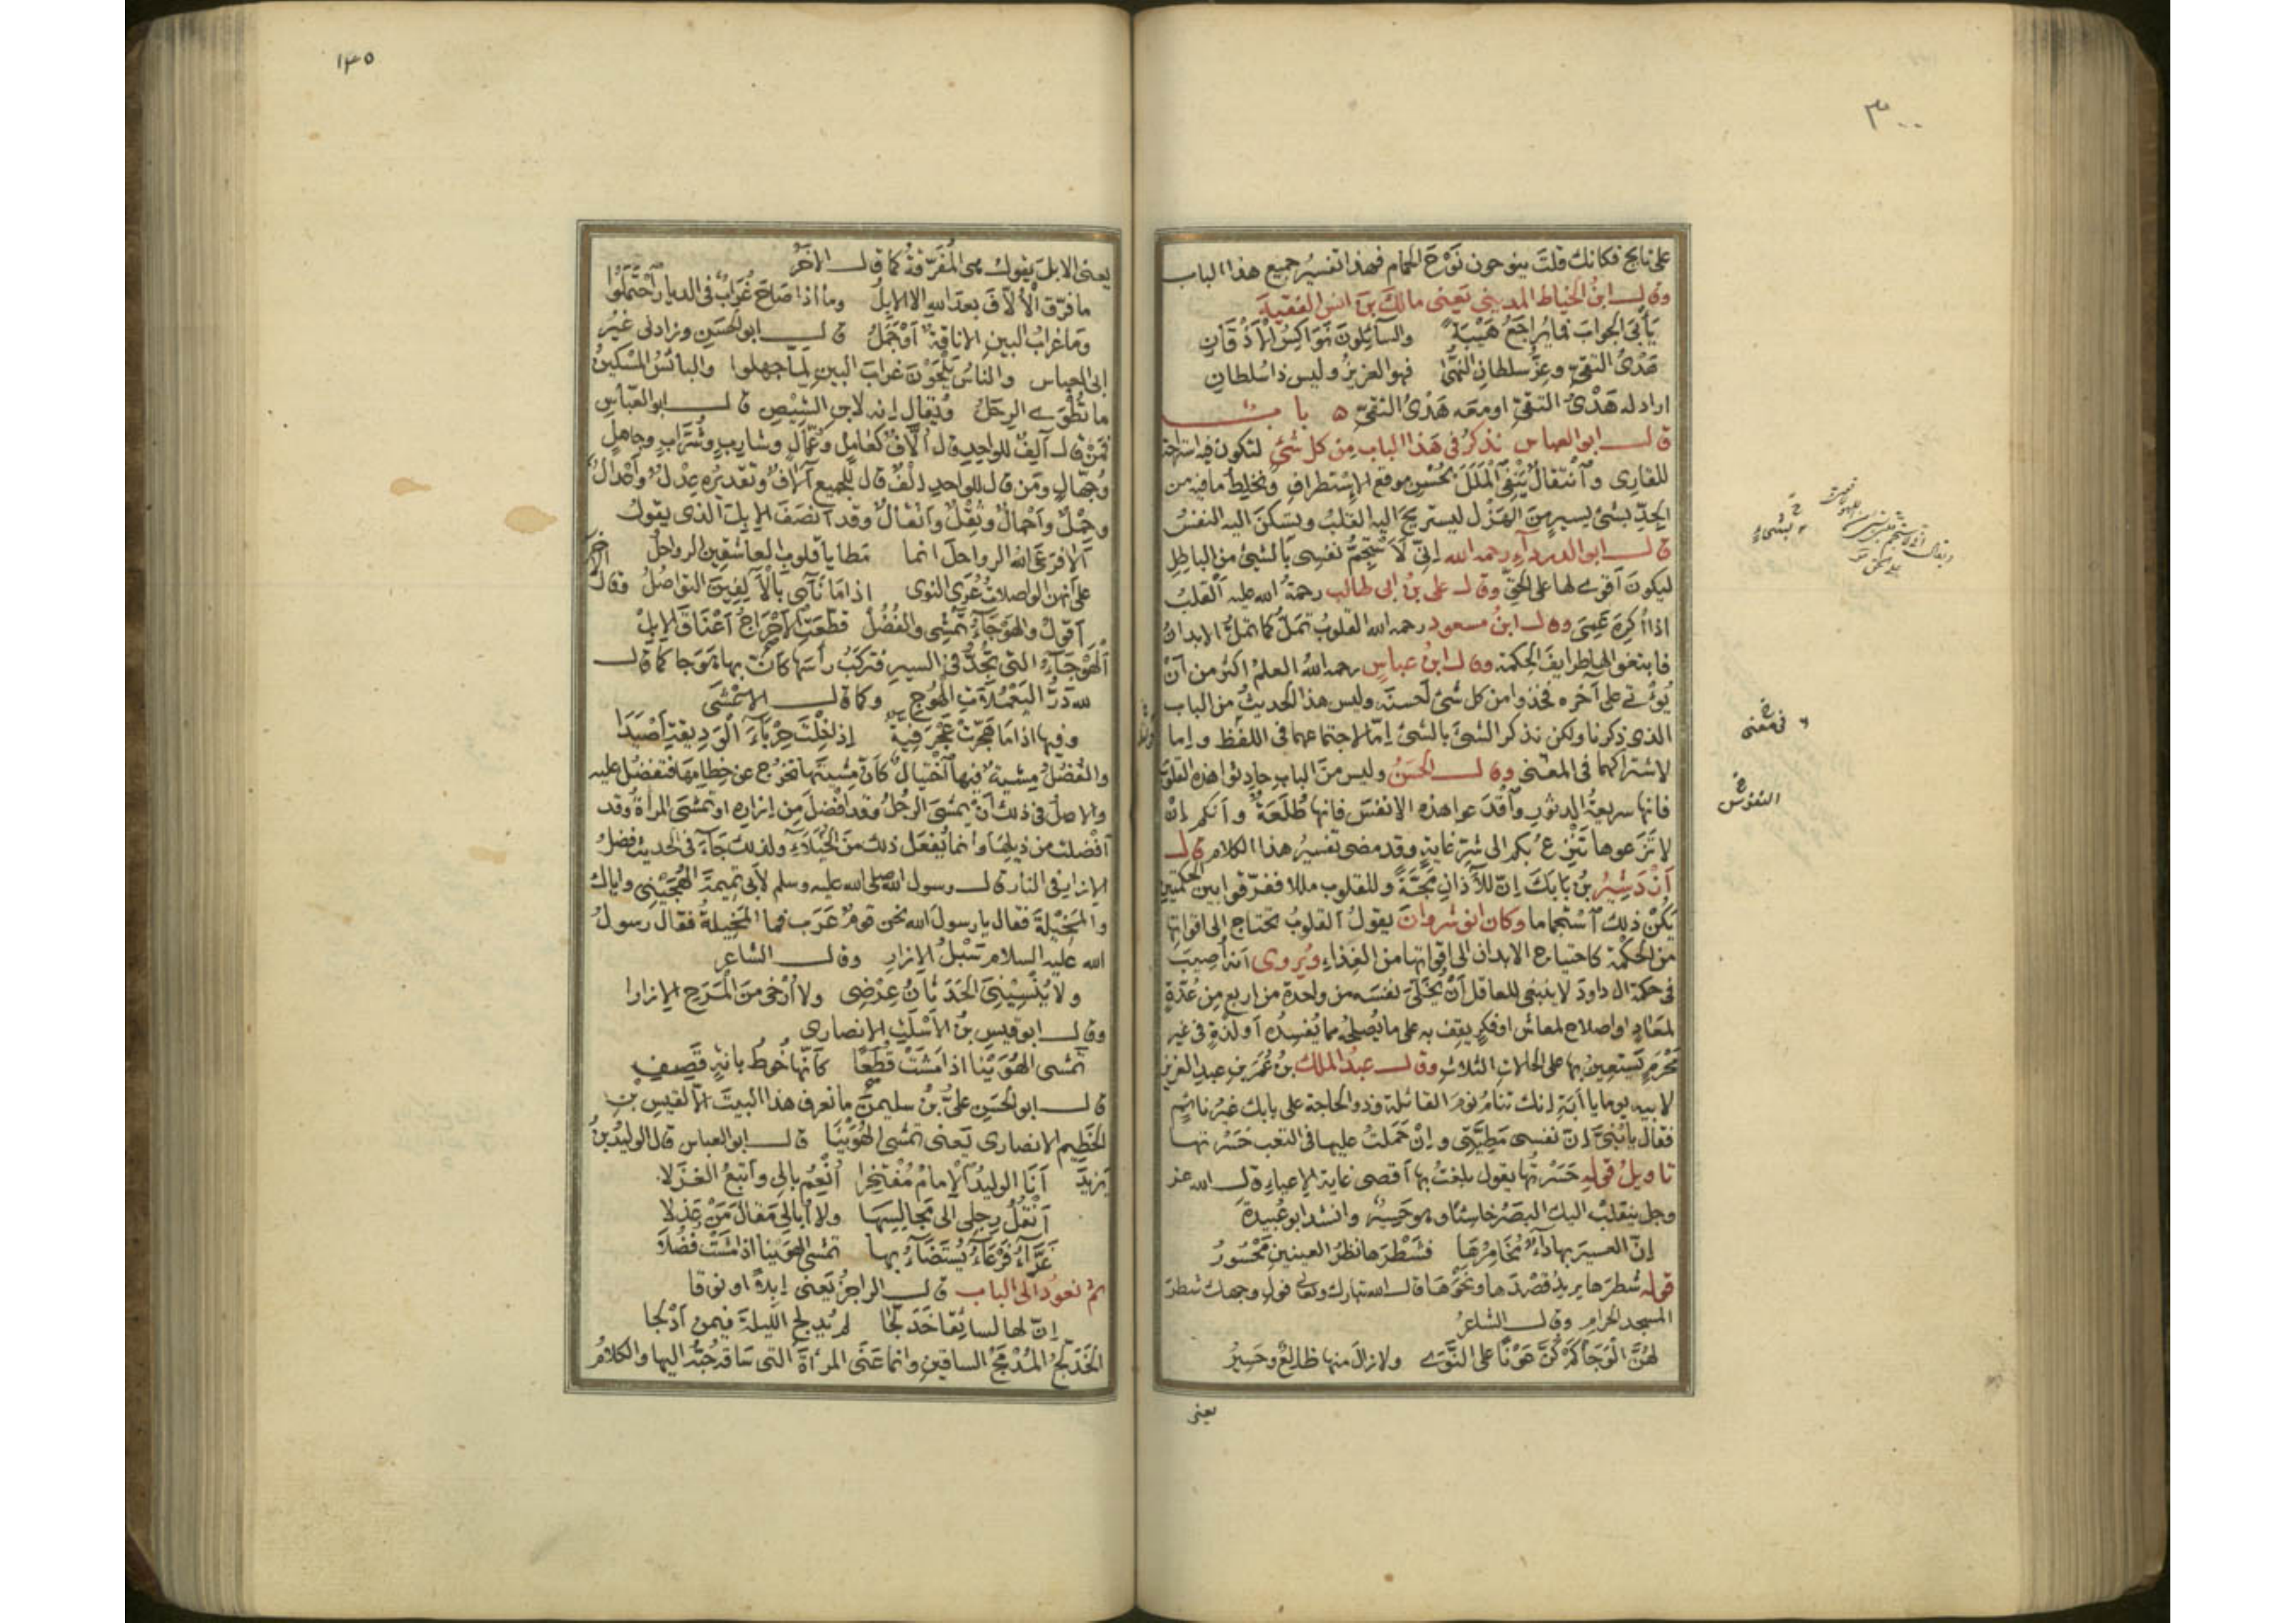 ٣٠٠
على نايح فكانك قلت ينوحون نَوْحَ الحمام فهذا تفسيرُ جميع هذا الباب
وقال ابنُ الخياط المديني يعنى مالكَ بن انس الفقيهَ
يَأبَى الجوابَ فما يُراجَعُ هَيْبَةً والسآئِلونَ نَوَاكِسُ الْأَذْقَانِ
هَدْىُ التقىّ وعِزُّ سلطانِ النُّهَى فهو العزيزُ وليس ذا سُلطانِ
اراد له هَدْىُ التقىّ او معه هَدْىُ التقىّ ٥ باب
قال ابو العباس نذكرُ فى هَذا الباب مِن كل شئٍ لتكون فيه استراحة
للقارِى وَٱنتقالٌ يَنْفِى الْمَلَلَ بحُسْنِ موقع الاِسْتطرافِ ونخلِطُ ما فيه من
الجِدّ بشئٍ يسيرٍ منَ الهَزْلِ ليستريحَ اليه القلبُ ويسكنَ اليه النفسُ
قال ابو الدرداءِ رحمه الله اِنّى لَاَسْتَجِمُّ نفسى بالشئِ من الباطِلِ
ليكونَ اقوى لها على الحَقِّ وقال على بنُ ابى طالب رحمةُ الله عليه القلبُ
اذا اُكرِهَ عَمِىَ وقال ابنُ مسعود رحمه الله القلوبُ تمَلُّ كما تَملُّ الابدانُ
فابتغوا لها طرايفَ الحِكمة وقال ابنُ عباسٍ رحمه اللهُ العلمُ اكثر من اَنْ
يُؤْتى على آخره فخذوا من كل شئ اَحسنَه وليس هذا الحديثُ من الباب
الذى ذكرنا ولكن نذكر الشئَ بالشئِ اِمّا لاجتماعهما فى اللفظ واِما
لاشتراكهما فى المعْنى وقال الحَسَنُ وليس منَ البابِ حادِثوا هذه القلوبَ
فانها سريعةُ الدثورِ وَاقْدَعوا هذه الانفسَ فانها طُلَعَةٌ واَنكم اِنْ
لا تَزَعوها تَنْزِعْ بكم الى شرّ غايةٍ وقد مضى تفسيرُ هذا الكلام قال
اَرْدَشِيرُ بنُ بَابَكَ اِنّ للآذانِ مَجّةً وللقلوب مللا ففرّقوا بين الحكمتين
يكنْ ذلك اَسْتجماما وكان انوشروان يقولُ القلوبُ تحتاج الى اقواتها
من الحكمة كاحتياج الابدان الى اقواتها من الغِذاءِ ويُروى اَنه اُصيبَ
فى حكمة ال داودَ لا ينبغى للعاقل اَنْ يُخَلّىَ نفسَه من واحدة من اربع مِن عُدّةٍ
لمَعَادٍ او اصلاح لمعاش او فكرٍ يقِف به على ما يُصلحُه مما يُفسِدُه اَو لذةٍ فى غيرِ
مَحْرَمٍ يَستعِينُ بها على الحالاتِ الثلاثِ وقال عبدُ الملك بنُ عُمَرَ بنِ عبدِ العزيز
لابيه يوما يا اَبَةِ اِنك تنامُ نومَ القائلة وذو الحاجة على بابك غيرُ نائمٍ
فقال يا بُنىّ اِنّ نفسى مَطِيَّتِى واِنْ حَمَلتُ عليها فى التعب حَسَرْتها
تاويلُ قولِه حَسَرْتُها يقول بلغتُ بها اَقصى غاية الاِعياءِ قال الله عز
وجل ينقلبْ اليك البصَرُ خاسئًا وهو حَسِيرٌ وانشد ابو عُبيدةَ
اِنّ العسيرَ بها دآءٌ مُخَامِرُهَا فشَطْرَها نظرُ العينين مَحْسُورُ
قوله شطرَها يريدُ قَصْدَها ونَحْوَها قال الله تبارك وتعالى فولِّ وجهك شطرَ
المسجد الحرام وقال الشاعرُ
لهُنَّ الْوَجَا كُمْ كُنَّ عَوْنًا على النَّوى ولا زالَ منها ظالِعٌ وحَسِيرُ
يعنى
فى معنى
النفوس
١٣٥
يعنى الابلَ يقول هى المُفَرِّقةُ كما قال الآخَرُ
ما فرّق الْاُلّافَ بعدَ اللهِ الا الاِبِلُ وما اذا صَاحَ غُرَابٌ فى الديار اَحْتَمَلُوا
ومَا غرابُ البينِ الا ناقةٌ اَوْ جَمَلُ قال ابو الحسَين وزادنى غيرُ
ابى العباس والناسُ يَلْحَوْنَ غرابَ البينِ لِمَا جهلوا والبائسُ المسكينُ
ما تُطْوَى الرِحَلُ ويُقال اِنه لابى الشِّيْصِ قال ابو العبّاسِ
فمَنْ قال آلِفٌ للواحِدِ قال اُلّافٌ كعَامِلٍ وعُمّالٍ وشارِبٍ وشُرّابٍ وجاهلٍ
وجُهّالٍ ومَن قال للواحد اِلْفٌ قال للجميع آلافٌ وتقديرُه عِدْلٌ واَعْدالٌ
وحِمْلٌ واَحْمالٌ وثِقْلٌ واَثقالٌ وقد اَنصَفَ الاِبلَ الذى يقول
اَلا فَرَعَى اللهُ الرواحلَ انما مَطايا قلوبِ العاشقين الرواحلُ
على اَنهنّ الواصلاتُ عُرَى النوى اذا مَا نَآى بالْاَلِفِينَ التواصُلُ وقال الآخَر
اَقولُ والهَوْجَآءُ تَمْشِى والفُضُلْ قطّعَتِ الْاَحْرَاجُ اَعْنَاقَ الاِبِلْ
اَلْهَوْجَآءُ التى تَجِدُّ فى السير فتركَبُ رأسَها كاَنّ بها هَوَجا كما قال
للهِ دَرُّ اليَعْمَلَاتِ الْهُوجِ وكما قال الاعْشَى
وفيها اذا مَا هَجّرتْ عَجْرَفِيةٌ اِذا خِلْتَ حِرْبَآءَ الْوَدِيقةِ اَصْيَدَا
والفُضُلُ مِشيةٌ فيها اَخْتيالٌ كاَنّ مِشيتَها تخرُج عن خِطامِها فتفضُل عليه
والاصلُ فى ذلك اَنْ يَمْشِىَ الرجُلُ وقد اَفْضلَ مِن اِزاره او تمشىَ المرأةُ وقد
اَفْضلتْ من ذَيلِهَا وانما يُفعَل ذلك منَ الْخُيَلَآءِ ولذلك جَآءَ فى الحديث فَضلُ
الاِزارِ فى النار قال رسول الله صلى الله عليه وسلم لأبى تميمةَ الهُجَيْمِى واياك
والمَخِيْلَةَ فقال يا رسولَ الله نحن قومٌ عَرَب فما المَخِيلةُ فقال رسولُ
الله عليه السلام سَبَلُ الاِزارِ وقال الشاعر
ولا يُنْسِينِىَ الحَدَثَانُ عِرْضِى ولا اُرْخِى منَ الْمَرَحِ الاِزارا
وقال ابو قيسِ بنُ الْاَسْلَتِ الانصارى
تَمْشِى الهُوَيْنا اذا مَشَتْ قُطُعًا كاَنّها خُوطُ بانةٍ قَصِفِ
قال ابو الحَسَن علىُّ بنُ سليمنَ ما نعرف هذا البيتَ الا لقيس بنِ
الخَطِيمِ الانصارى يَعنى تمشى الهُوَيْنَا قال ابو العباس قال الوليدُ بنُ
يَزيدَ اَنَا الوليدُ الْاِمامُ مُفْتَخِرَا اُنْعِمُ بالى واَتبَعُ الغَزَلا
اَنْقُلُ رِجْلِى الى مَجَالِسِهَا ولا اُبالى مقالَ مَنْ عَذَلا
غَرّآءُ فَرْعَآءُ يُسْتَضَآءُ بها تمشى الهوينا اذا مشَتْ فُضُلَا
ثم نعودُ الى الباب قال الراجزُ يَعنى اِبلا او نوقا
اِنّ لها لسائقا خَدَلّجا لم يُدلِجِ الليلةَ فيمن اَدْلجا
الخَدَلّجُ المُدْمَجُ الساقينِ وانما عَنَى المرأةَ التى سَاقه حُبُّه اليها والكلامُ